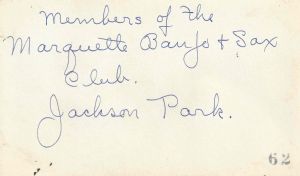 Members of the
Marquette Banjo + Sax
Club.
Jackson Park.
62